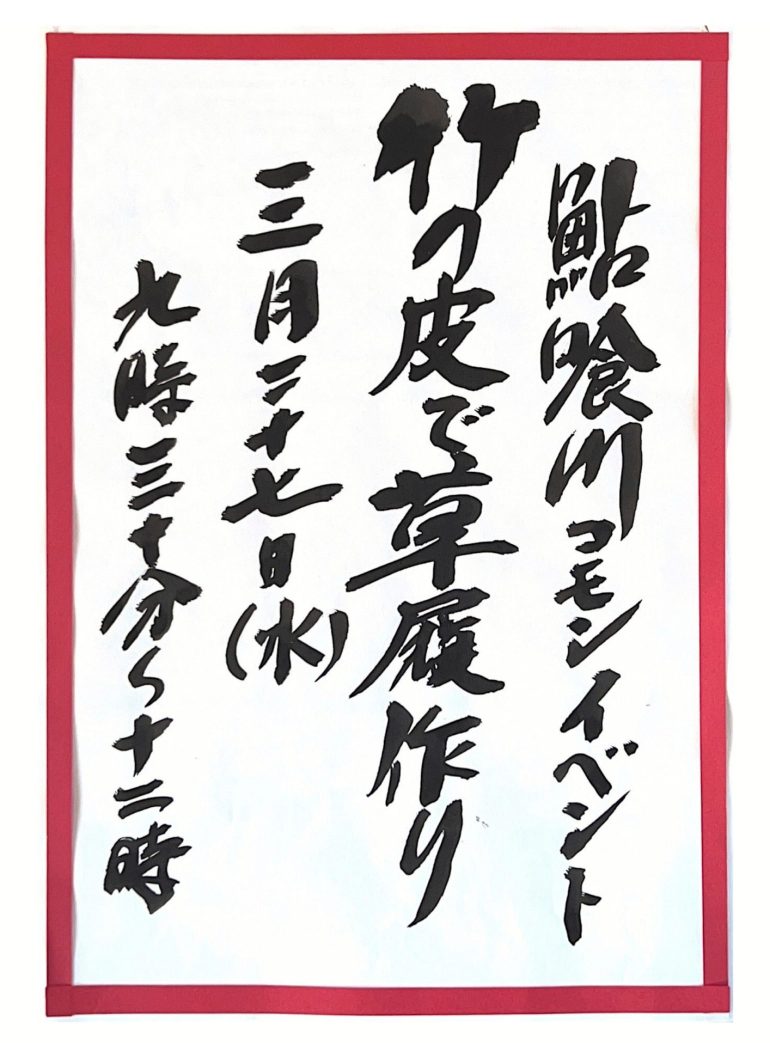 鮎喰川コモンイベント
竹の皮で草履作り
三月二十七日(水)
九時三十分〜十二時